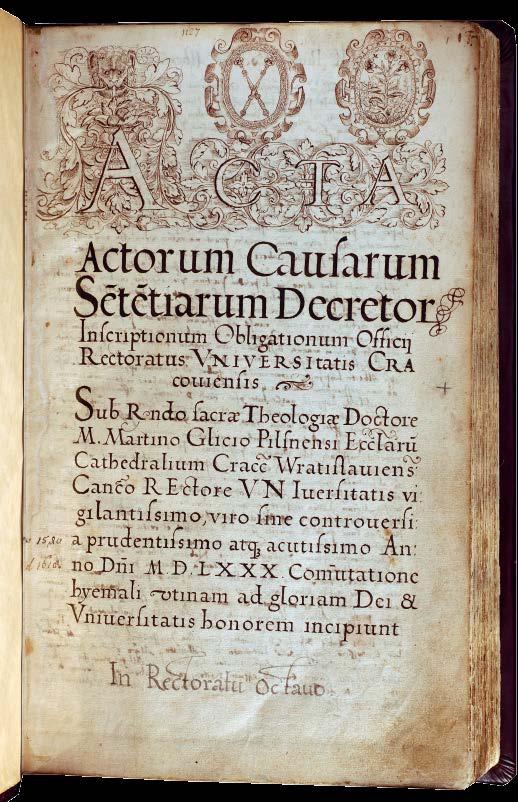 1127
ACTA
Actorum Causarum
Sētētiarum Decretor
Inscriptionum Obligationum Officij
Rectoratus VNIVERSItatis CRA
couiensis
Sub Rndo sacræ Theologiæ Doctore
M. Martino Glicio Pilsnensi Eccl̃arū
Cathedralium Cracc̃ Wratislauiens̃
Canc̃o REctore VNIuersitatis vi:
gilantissimo, viro sine controuersi:
a prudentissimo atq; acutissimo An:
no Dn̄i M D. LXXX. Com̄utatione
hyemali vtinam ad gloriam Dei &
Vniuersitatis honorem incipiunt
1580
1610
In Rectoratu Octauo